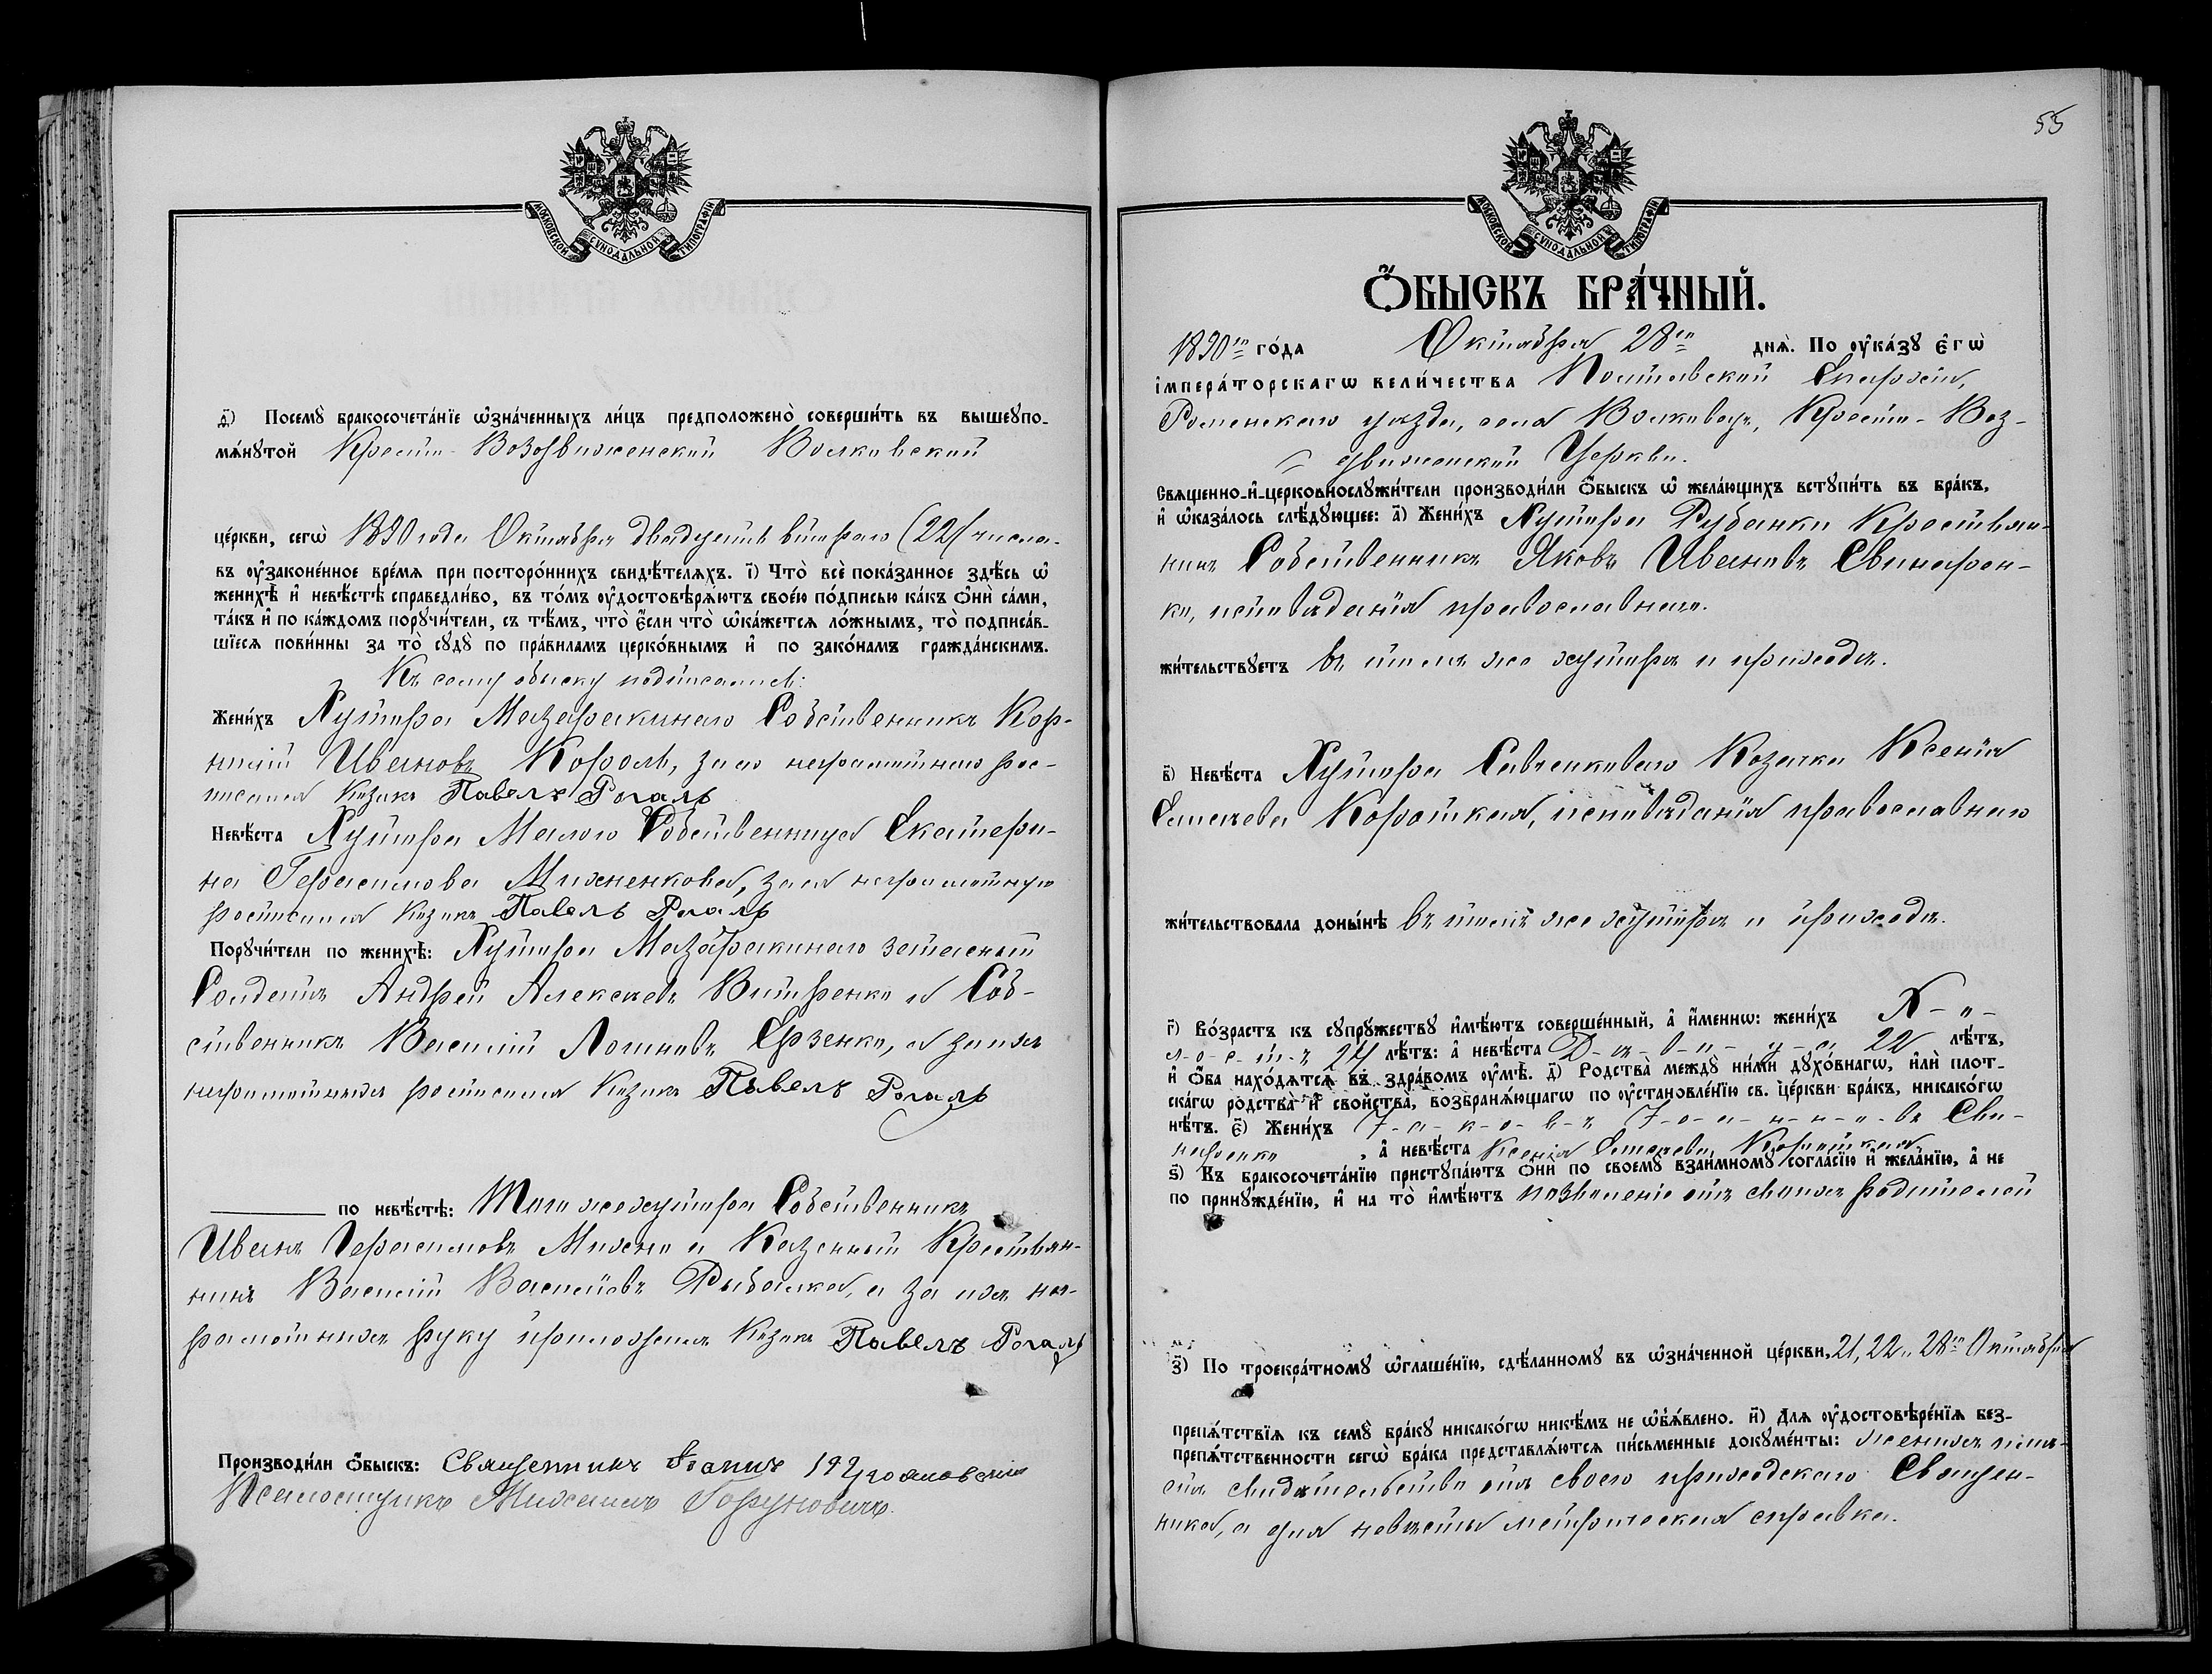 МОСКОВСКОЙ СѴНОДАЛЬНОЙ ТИПОГРАФІИ
д҃) Посемꙋ бракосочета́нїе ѡ҆зна́ченныхъ ли́цъ предположено̀ соверши́ть въ вышеꙋпо-
мѧ́нꙋтой Кресто-Воздвиженской Волковской
це́ркви, сегѡ̀ 1890 года Октября двадцать втораго (22) числа.
въ ᲂу҆зако́ненное вре́мѧ при посторо́ннихъ свидѣ́телѧхъ. і҃) Что̀ всѐ пока́занное здѣ́сь ѡ҆
женихѣ̀ и҆ невѣ́стѣ справедли́во, въ то́мъ ᲂу҆достовѣрѧ́ютъ свое́ю по́дписью ка́къ ѻ҆нѝ са́ми,
та́къ и҆ по ка́ждомъ порꙋчи́тели, съ тѣ́мъ, что̀ є҆́сли что̀ ѡ҆ка́жетсѧ ло́жнымъ, то̀ подписа́в-
шїесѧ пови́нны за то̀ сꙋдꙋ̀ по пра́виламъ церко́внымъ и҆ по зако́намъ гражда́нскимъ.
Къ сему обыску подписались:
Жени́хъ Хутора Мазаракинаго Собственникъ Кор-
нилій Ивановъ Король, за его неграмотнаго рос-
писался Козакъ Павелъ Рогаль
Невѣ́ста Хутора Малого Собственница Екатери-
на Герасимова Михненкова, за ея неграмотную
росписался Козакъ Павелъ Рогаль
Порꙋчи́тели по женихѣ̀: Хутора Мазаракинаго запасный
Солдатъ Андрей Алексѣевъ Витренко и Соб-
ственникъ Василій Логиновъ Ерзенко, а за ихъ
неграмотныхъ росписался Козакъ Павелъ Рогаль
по невѣ́стѣ: Того же хутора Собственникъ
Иванъ Герасимовъ Михно и Казенный Крестьян-
нинъ Василій Васильевъ Рыбалка, а за ихъ не-
грамотныхъ руку приложилъ Козакъ Павелъ Рогаль
Производи́ли ѻ҆́быскъ: Священникъ Іоаннъ
Псаломщикъ Михаилъ
55
МОСКОВСКОЙ СѴНОДАЛЬНОЙ ТИПОГРАФІИ
Ѻ҆́БЫСКЪ БРА́ЧНЫЙ.
1890го го́да Октября 28го днѧ̀. По ᲂу҆ка́зꙋ є҆гѡ̀
і҆мпера́торскагѡ вели́чества Полтавской Епархіи,
Роменскаго уѣзда, села Волковецъ, Кресто-Воз-
движенской Церкви.
Свѧще́нно-и҆-церковнослꙋжи́тели производи́ли ѻ҆́быскъ ѡ҆ жела́ющихъ встꙋпи́ть въ бра́къ,
и҆ ѡ҆каза́лось слѣ́дꙋющее: а҃) Жени́хъ Хутора Рубанки Крестьян-
нинъ Собственникъ Яковъ Ивановъ Свинарен-
ко, исповѣданія православнаго.
жи́тельствꙋетъ въ томъ же хуторѣ и приходѣ.
в҃) Невѣ́ста Хутора Савченковаго Козачка Ксенія
Короткая, исповѣданія православнаго
жи́тельствовала доны́нѣ въ томъ же хуторѣ и приходѣ.
г҃) Во́зрастъ къ сꙋпрꙋ́жествꙋ и҆мѣ́ютъ соверше́нный, а҆ и҆́менно: жени́хъ Х-о-
л-о-с-т-ъ 24 лѣ́тъ: а҆ невѣ́ста Д-ѣ-в-и-ц-а 22 лѣ́тъ,
и҆ ѻ҆́ба нахо́дѧтсѧ въ здра́вомъ ᲂу҆мѣ̀. д҃) Родства̀ междꙋ̀ ни́ми дꙋхо́внагѡ, и҆лѝ плот-
ска́гѡ родства̀ и҆ сво́йства, возбранѧ́ющагѡ по ᲂу҆становле́нїю св. це́ркви бра́къ, никако́гѡ
нѣ́тъ. є҃) Жени́хъ І-а-к-о-в-ъ І-о-а-н-н-о-въ Сви-
наренко, а҆ невѣ́ста Ксенія Короткая
ѕ҃) Къ бракосочета́нїю пристꙋпа́ютъ ѻ҆нѝ по своемꙋ̀ взаи́мномꙋ согла́сїю и҆ жела́нїю, а҆ не
по принꙋжде́нїю, и҆ на то̀ и҆мѣ́ютъ позволеніе отъ своихъ родителей
з҃) По троекра́тномꙋ ѡ҆глаше́нїю, сдѣ́ланномꙋ въ ѡ҆зна́ченной це́ркви, 21, 22 и 28го Октября
препѧ́тствїѧ къ семꙋ̀ бра́кꙋ никако́гѡ никѣ́мъ не ѡ҆б̾ѧ́влено. и҃) Длѧ ᲂу҆достовѣре́нїѧ без-
препѧ́тственности сегѡ̀ бра́ка представлѧ́ютсѧ пи́сьменные докꙋме́нты: женихъ
свидѣтельство отъ своего приходскаго Священ-
ника, а для невѣсты метрическая справка.